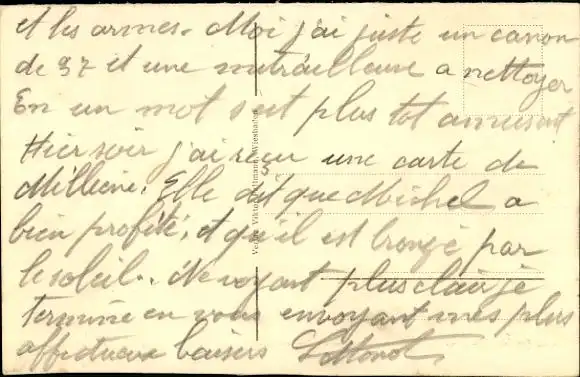 et les armes. Moi j'ai juste un canon
de 37 et une mitrailleuse a nettoyer
En un mot s'est plus tot amusant
Hier soir j'ai reçu une carte de
Elle dit que Michel a
bien profité, et qu'il est bronzé par
le soleil. Ne voyant plus clair je
termine en vous envoyant mes plus
affectueux baisers
Wiesbaden